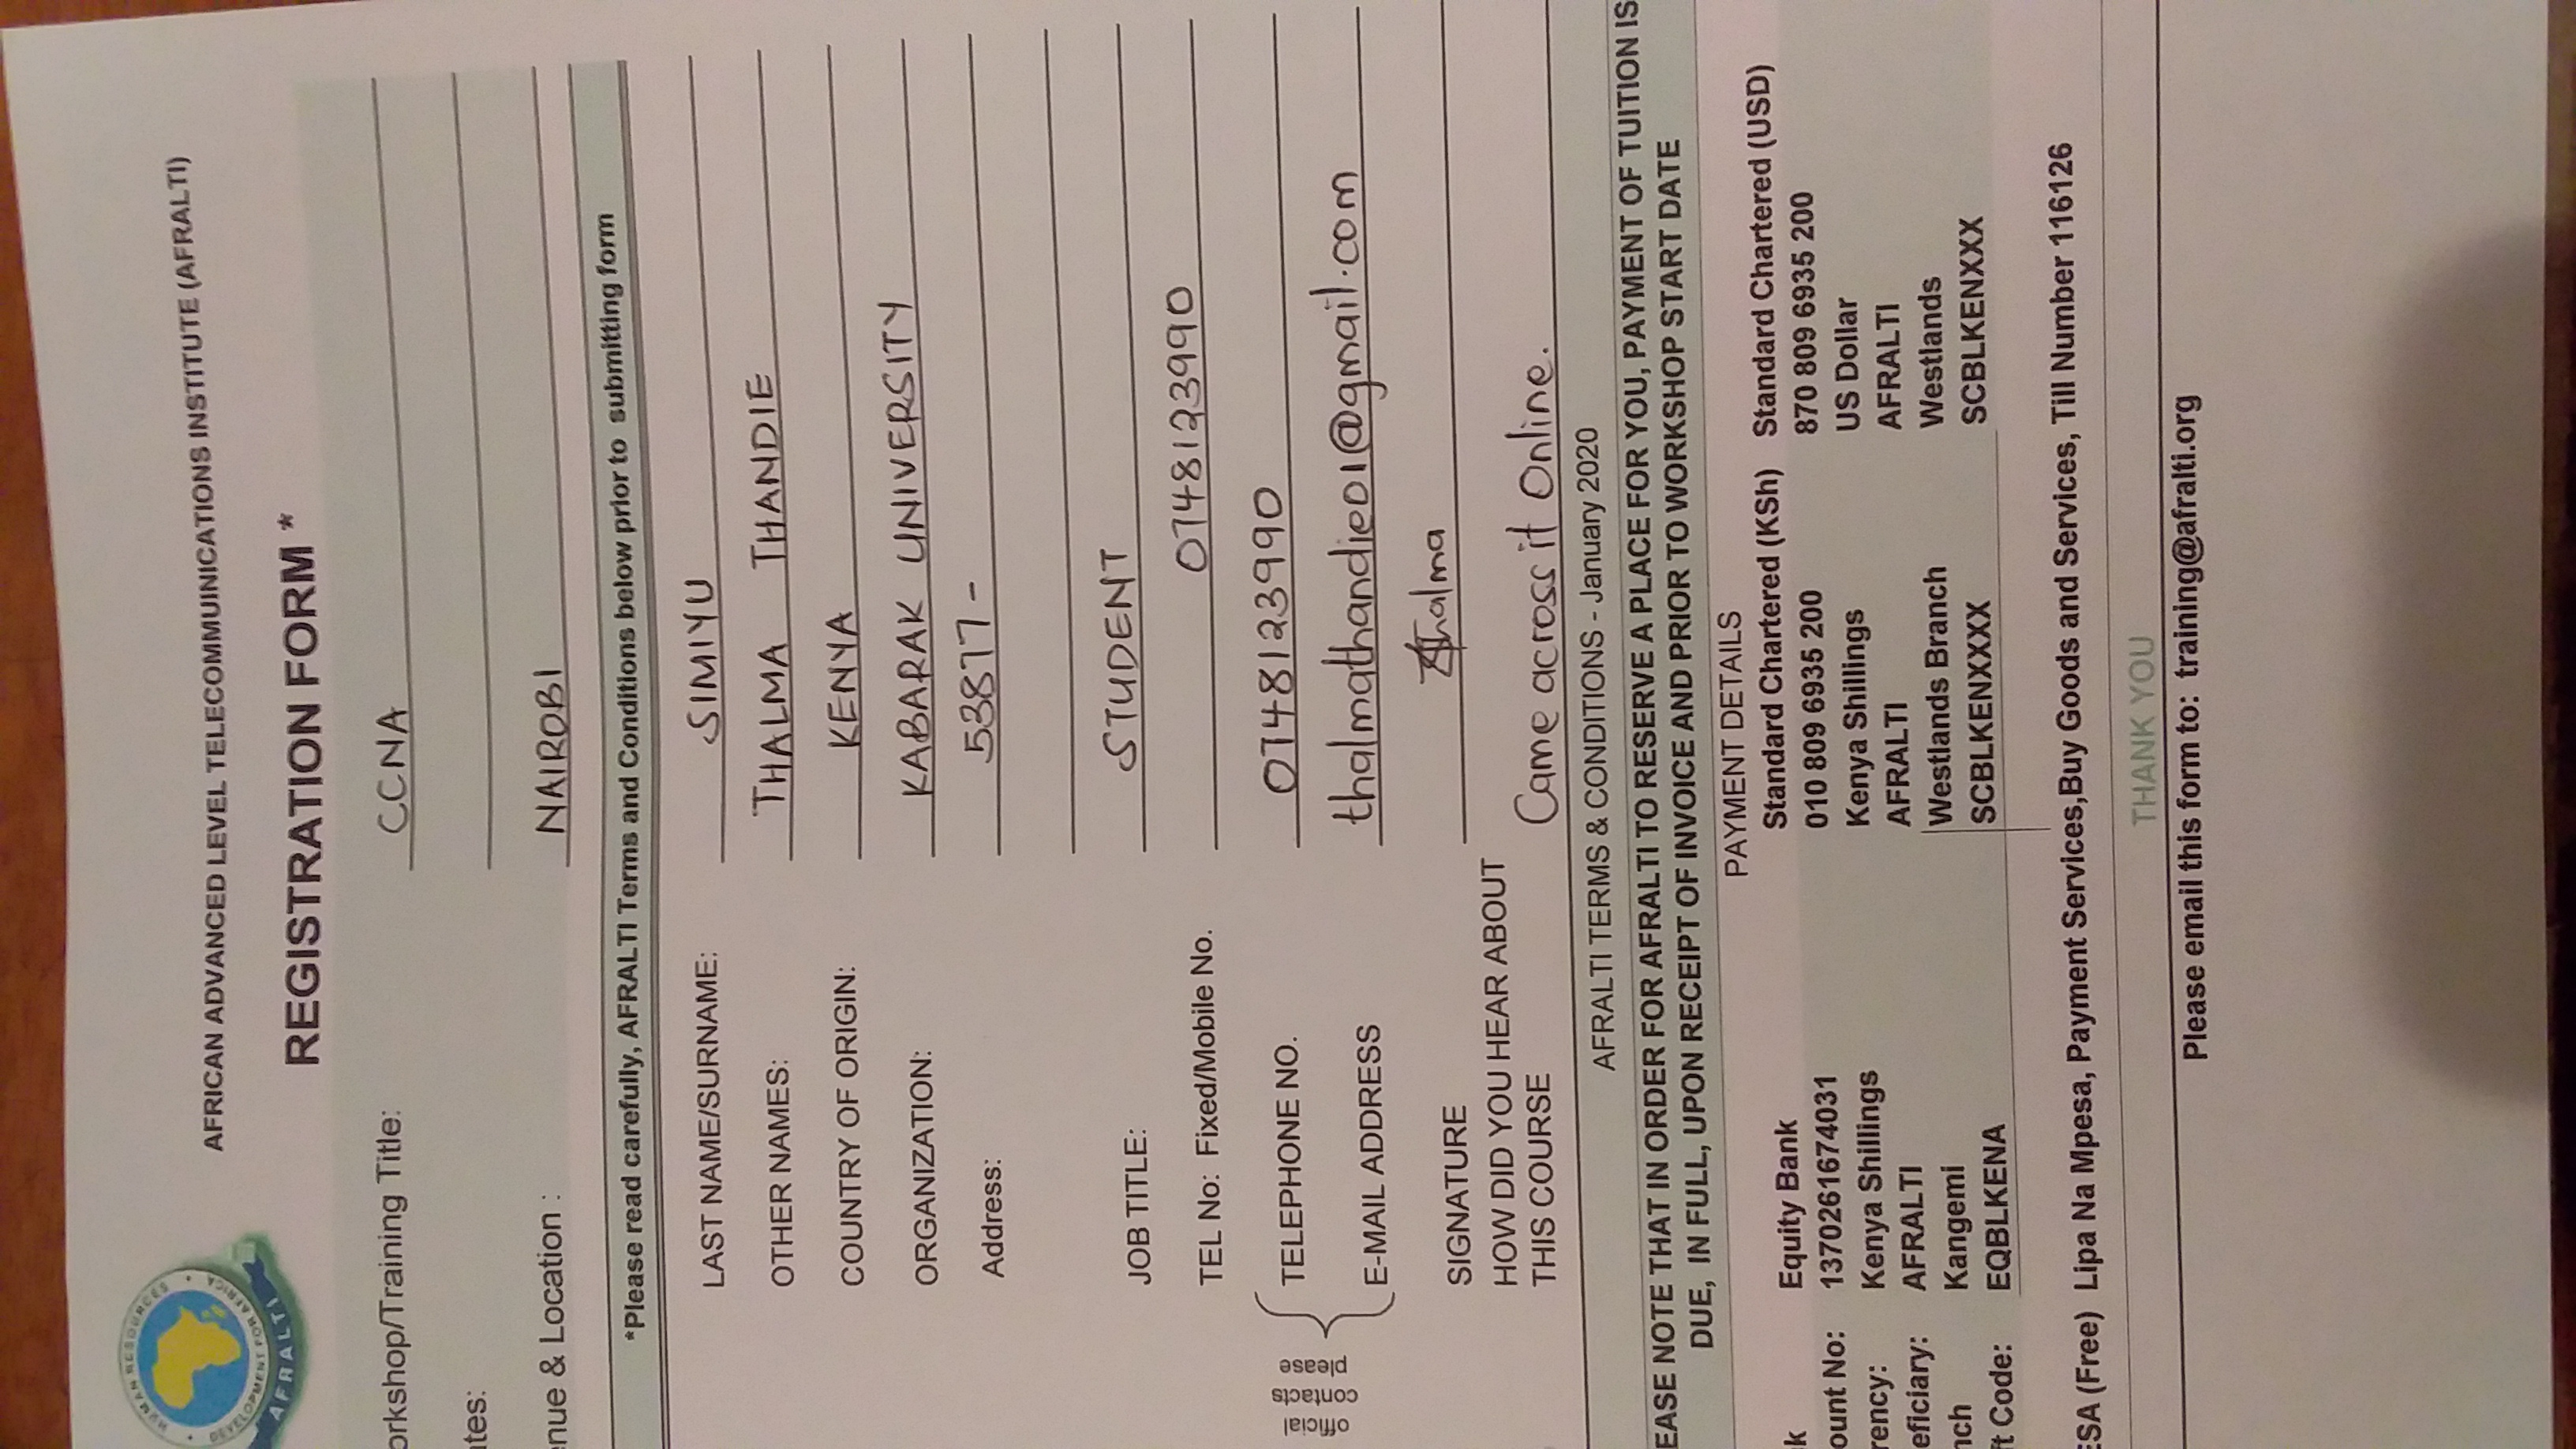 HUMAN RESOURCES
DEVELOPMENT FOR AFRICA
AFRALTI
AFRICAN ADVANCED LEVEL TELECOMMUINICATIONS INSTITUTE (AFRALTI)
REGISTRATION FORM *
orkshop/Training Title: CCNA
ates:
enue & Location : NAIROBI
*Please read carefully, AFRALTI Terms and Conditions below prior to submitting form
LAST NAME/SURNAME: SIMIYU
OTHER NAMES: THALMA THANDIE
COUNTRY OF ORIGIN: KENYA
ORGANIZATION: KABARAK UNIVERSITY
Address: 53877 -
JOB TITLE: STUDENT
TEL No: Fixed/Mobile No. 0748123990
official
contacts
please
TELEPHONE NO. 0748123990
E-MAIL ADDRESS thalmathandie01@gmail.com
SIGNATURE Thalma
HOW DID YOU HEAR ABOUT
THIS COURSE Came across it Online.
AFRALTI TERMS & CONDITIONS - January 2020
EASE NOTE THAT IN ORDER FOR AFRALTI TO RESERVE A PLACE FOR YOU, PAYMENT OF TUITION IS
DUE, IN FULL, UPON RECEIPT OF INVOICE AND PRIOR TO WORKSHOP START DATE
PAYMENT DETAILS
k Equity Bank Standard Chartered (KSh) Standard Chartered (USD)
ount No: 1370261674031 010 809 6935 200 870 809 6935 200
rency: Kenya Shillings Kenya Shillings US Dollar
eficiary: AFRALTI AFRALTI AFRALTI
nch Kangemi Westlands Branch Westlands
ft Code: EQBLKENA SCBLKENXXXX SCBLKENXXX
ESA (Free) Lipa Na Mpesa, Payment Services,Buy Goods and Services, Till Number 116126
THANK YOU
Please email this form to: training@afralti.org